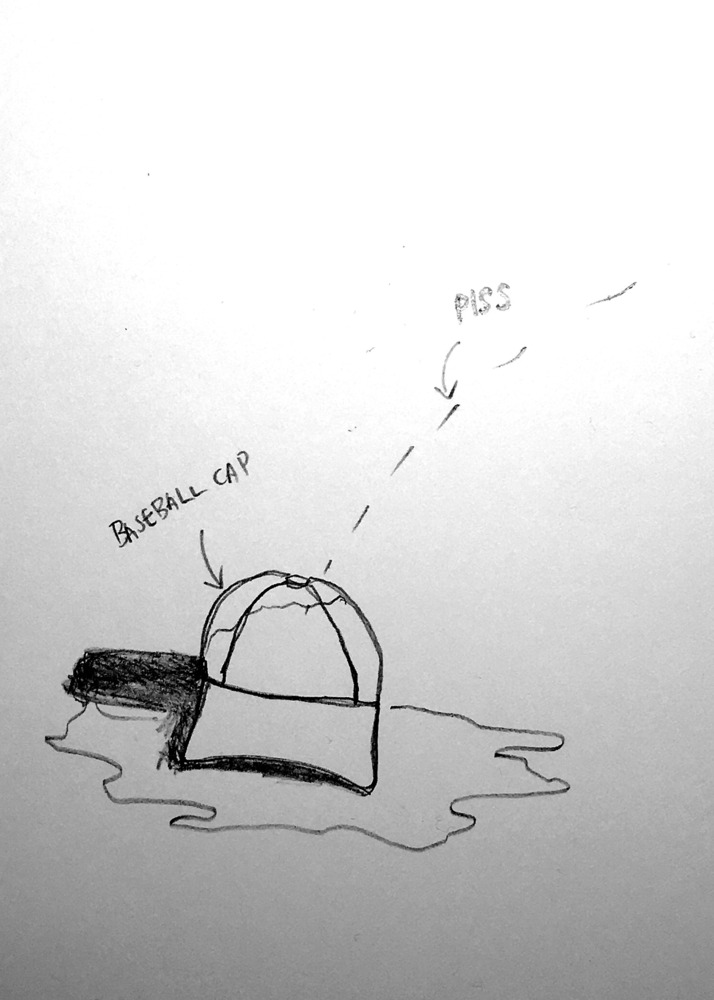 PISS
BASEBALL CAP